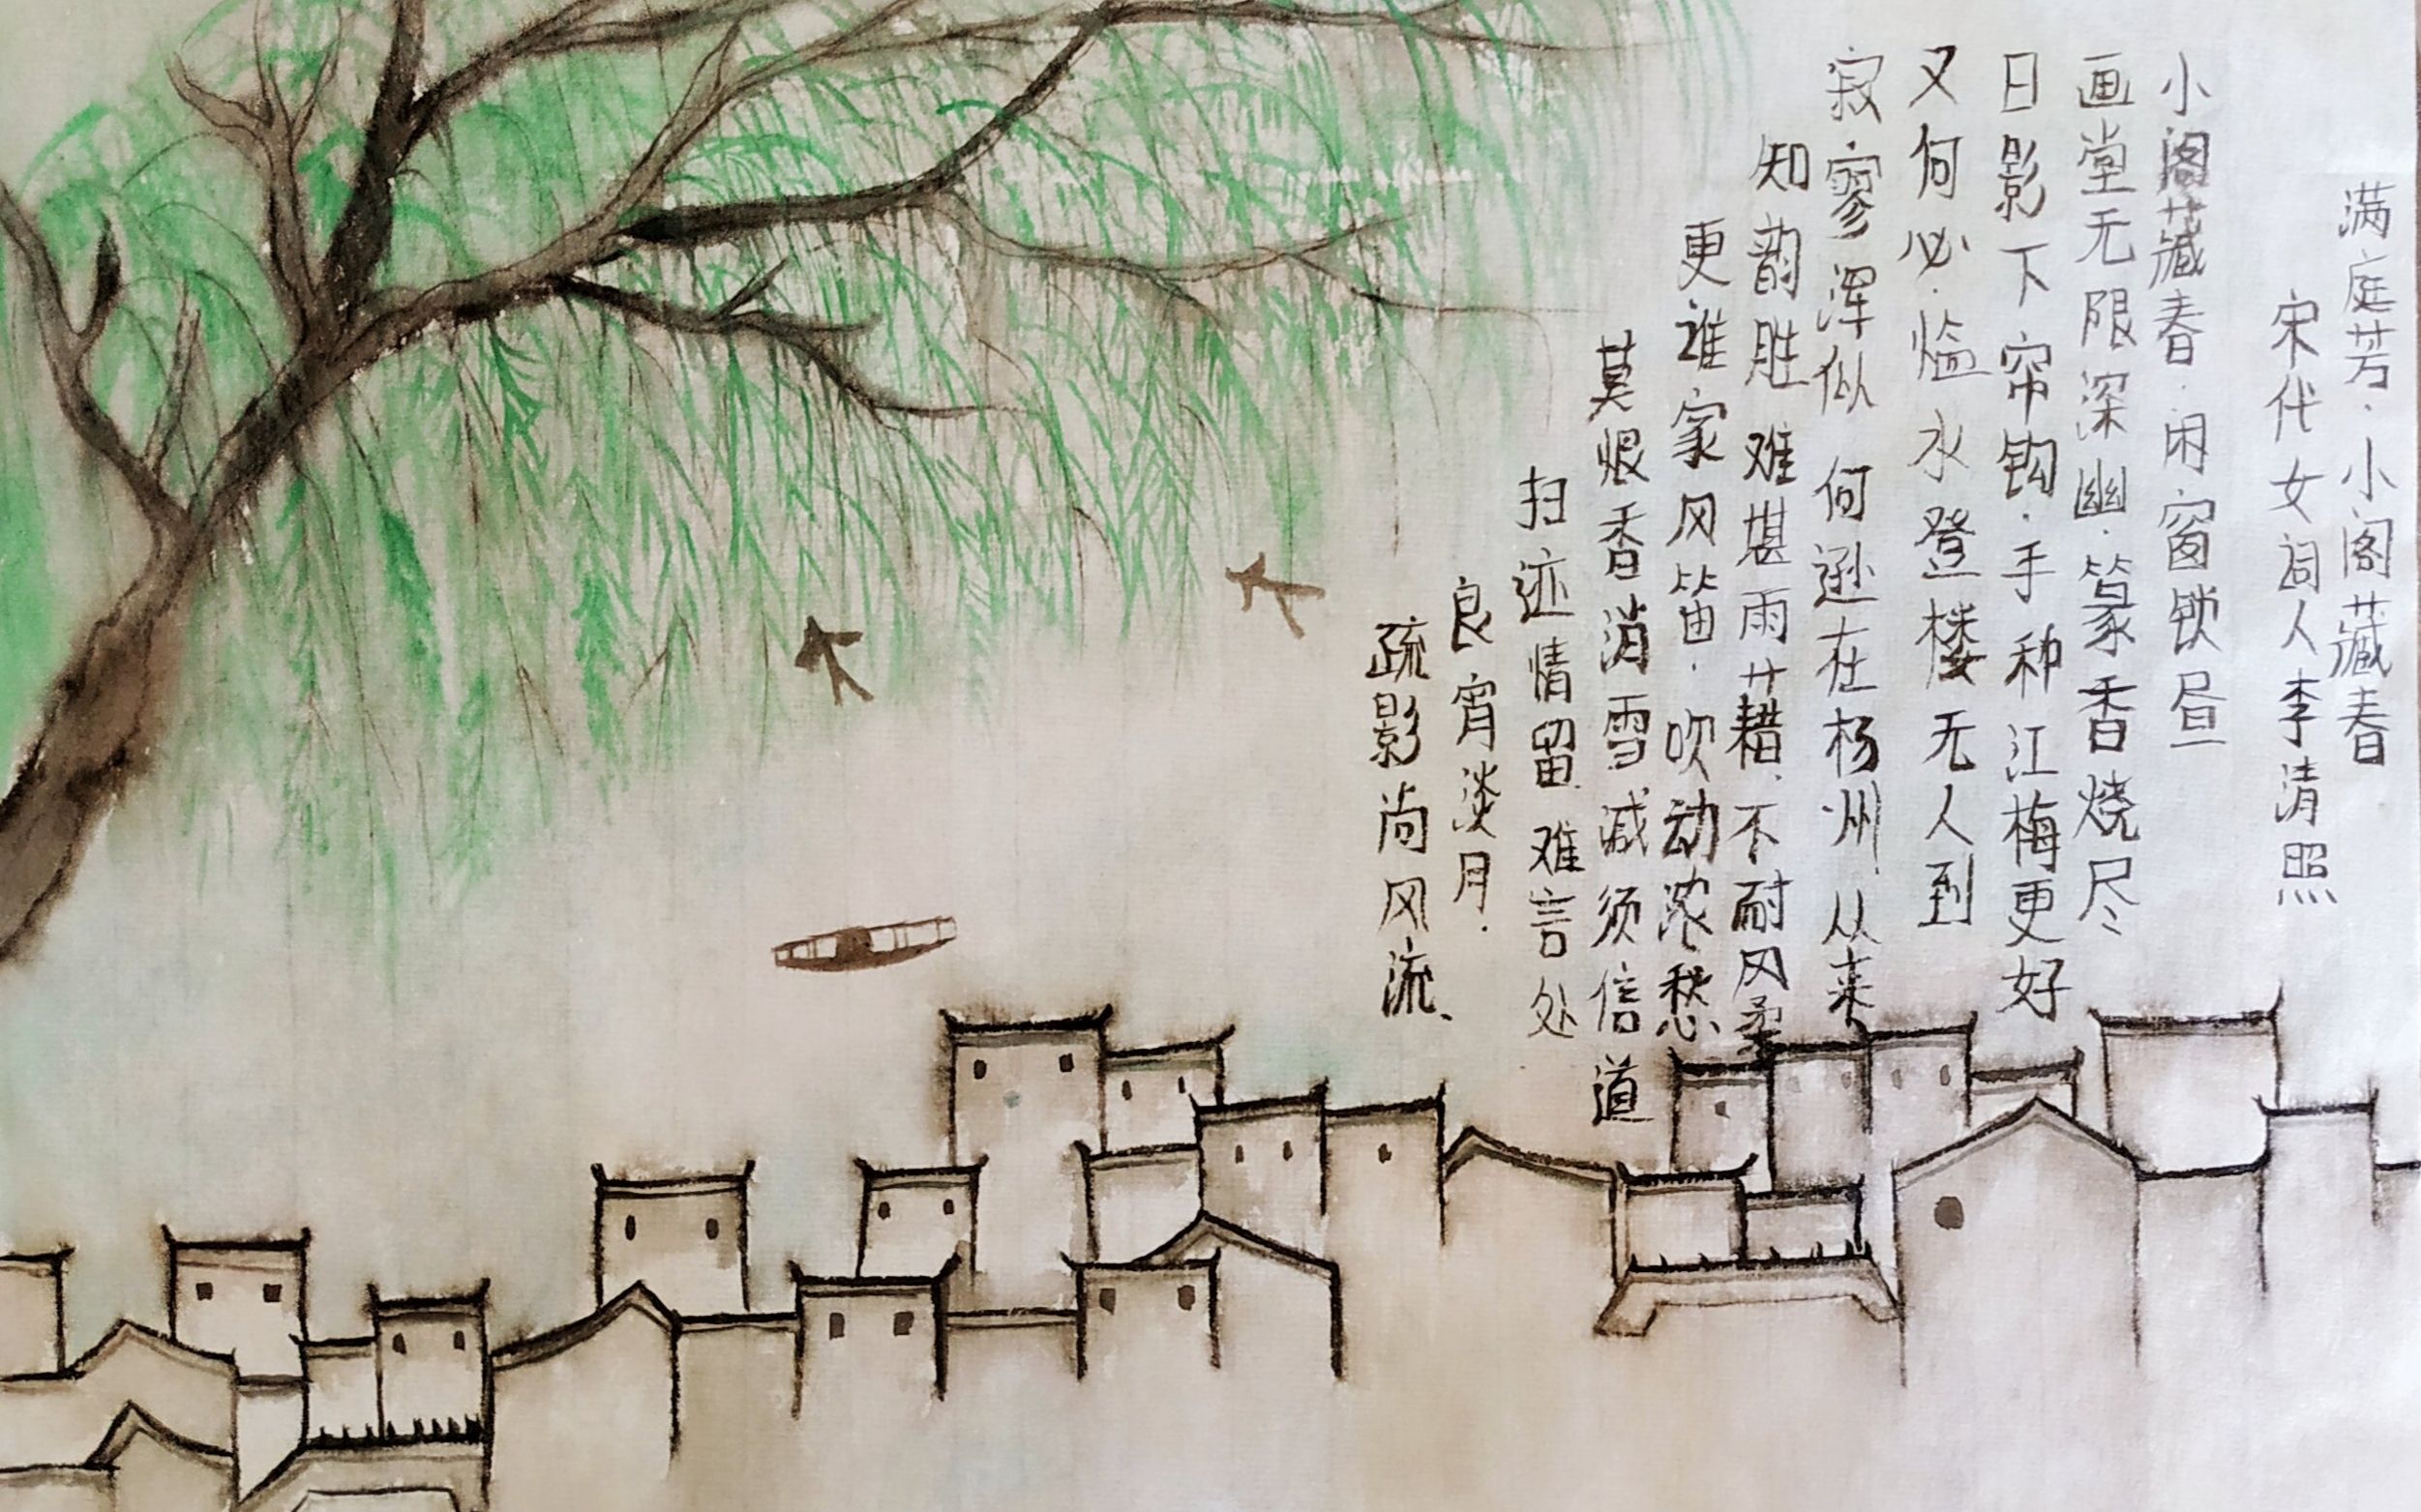 满庭芳·小阁藏春
宋代女词人李清照
小阁藏春·闲窗锁昼
画堂无限深幽·篆香烧尽
日影下帘钩·手种江梅更好
又何必·临水登楼无人到
寂寥浑似何逊在杨州.从来
知韵胜难堪雨藉.不耐风柔
更谁家风笛.吹动浓愁
莫恨香消雪减须信道
扫迹情留.难言处
良宵淡月.
疏影尚风流、